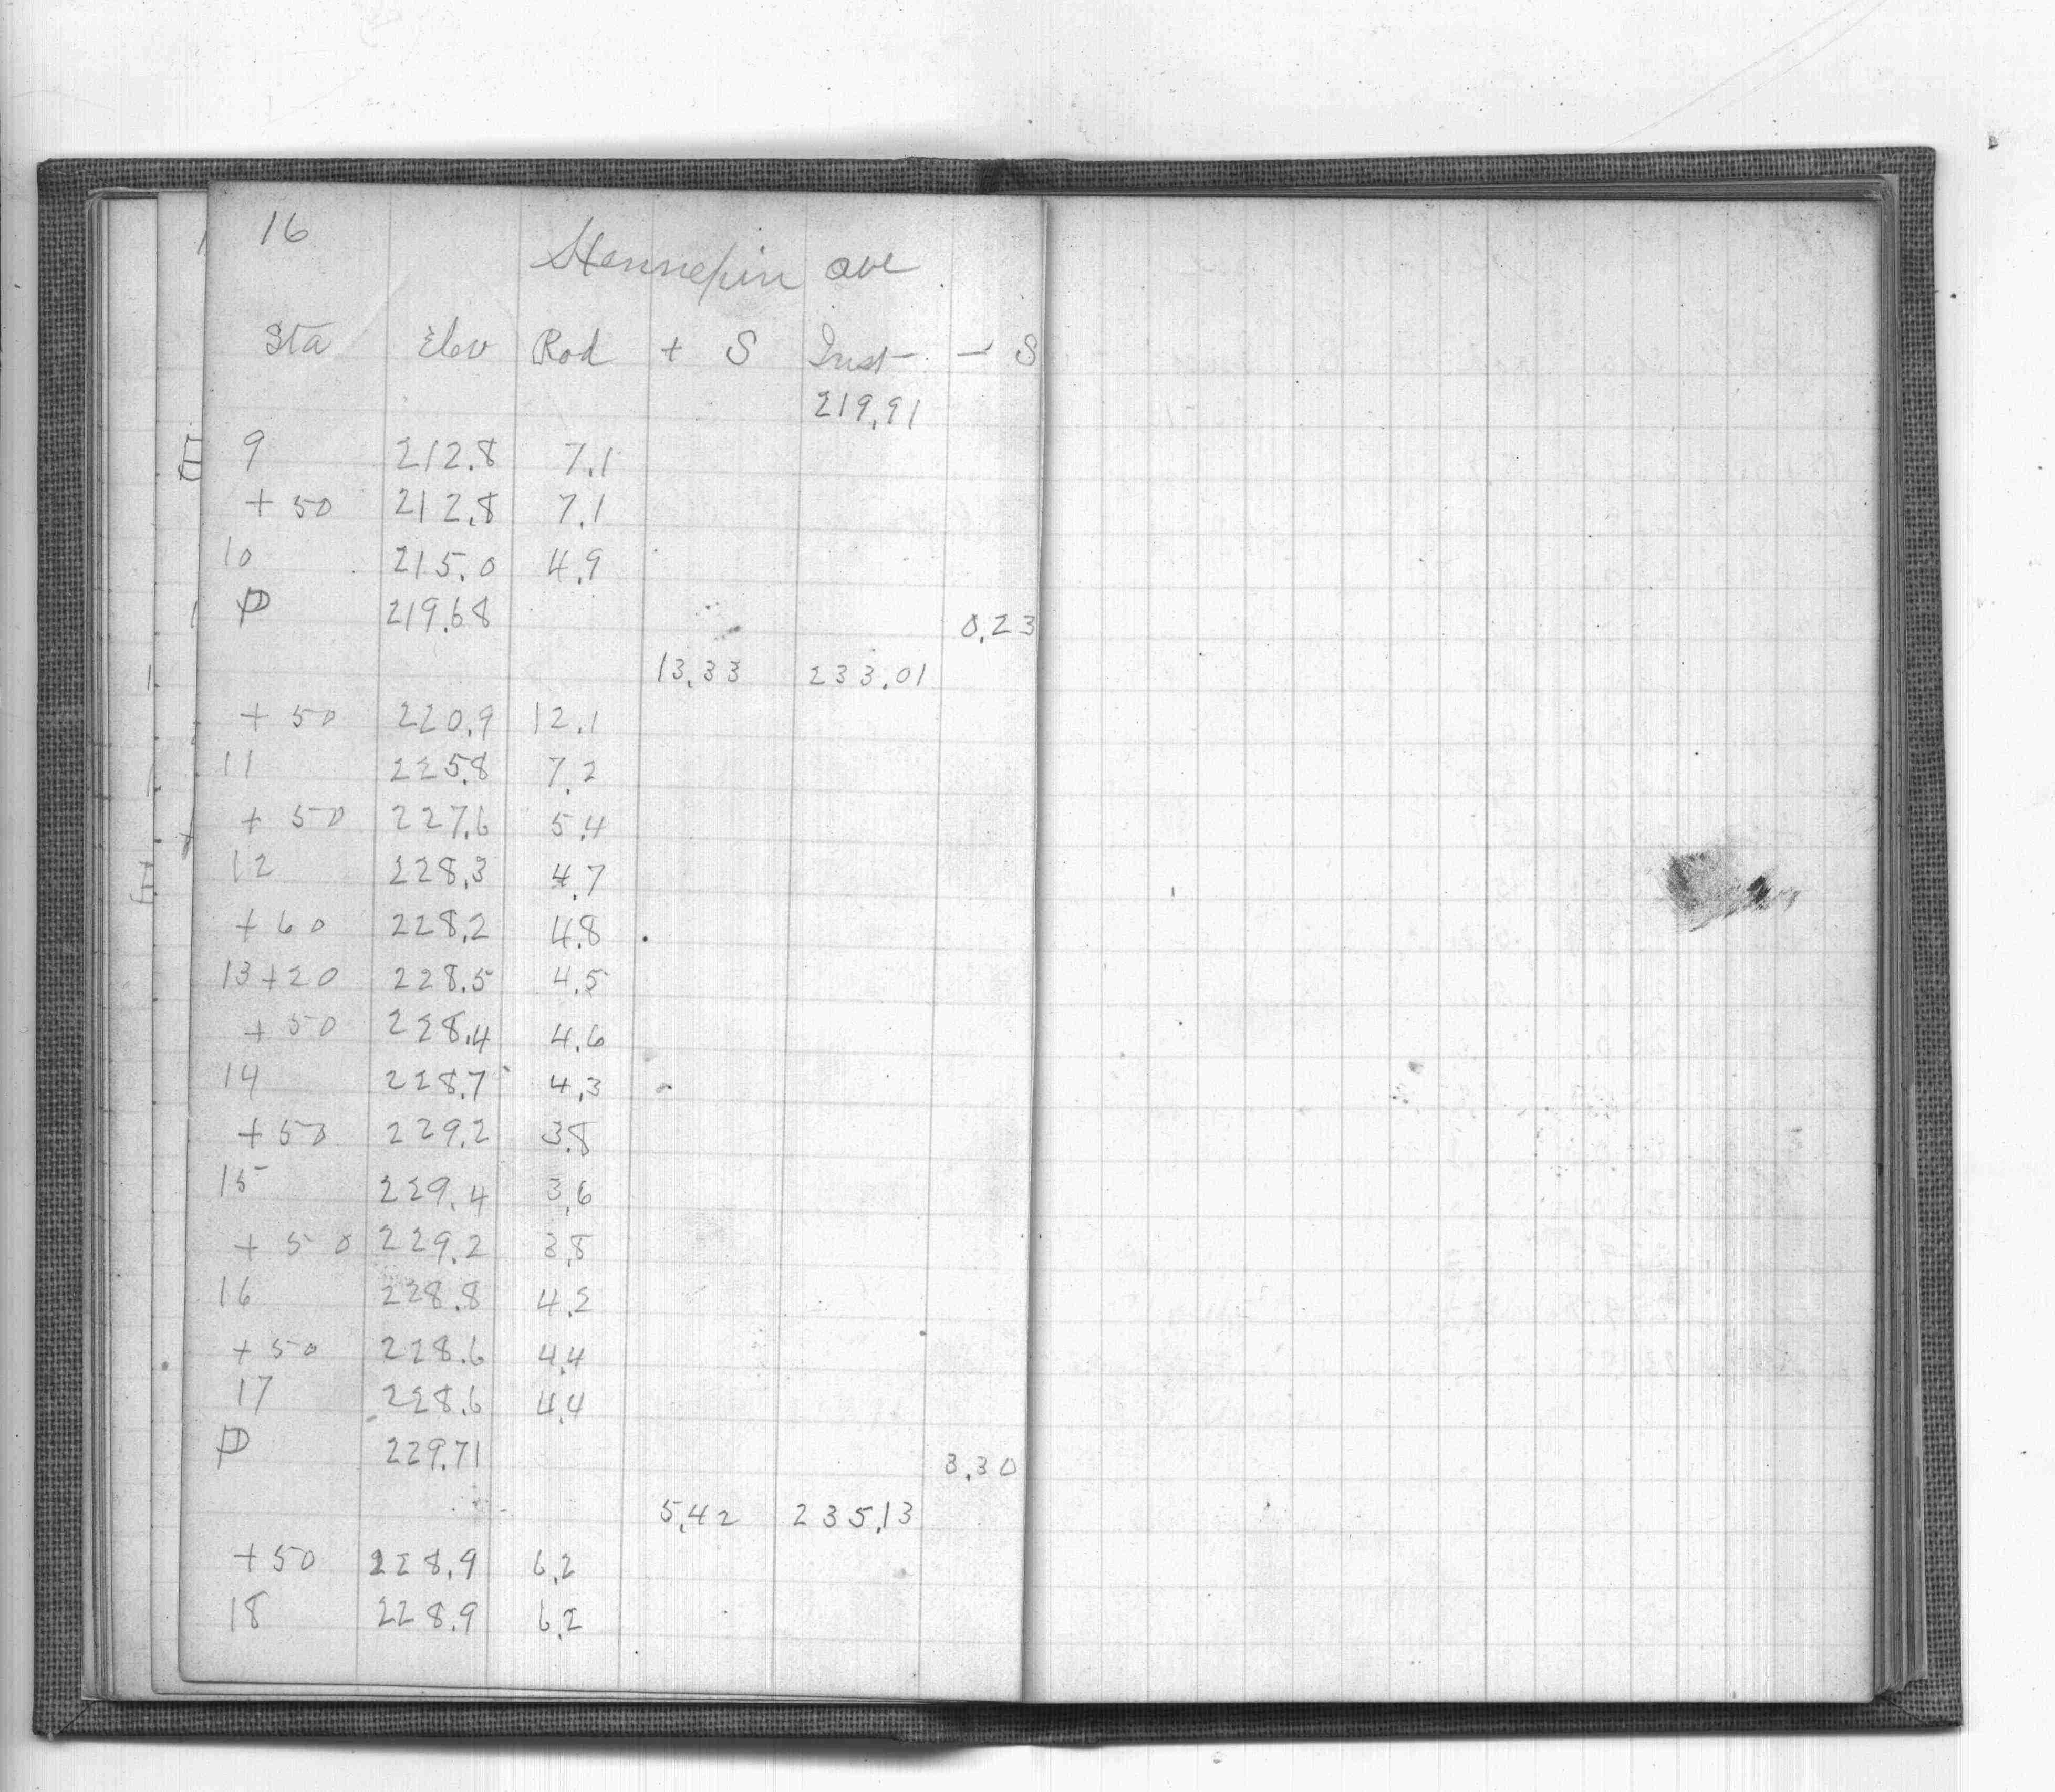 16
Hennepin ave
Sta Elev Rod + S Inst - S
219.91
9 212.8 7.1
+ 50 212.8 7.1
10 215.0 4.9
P 219.68 0.23
13.33 233.01
+ 50 220.9 12.1
11 225.8 7.2
+ 50 227.6 5.4
12 228.3 4.7
+ 60 228.2 4.8
13+20 228.5 4.5
+ 50 228.4 4.6
14 228.7 4.3
+ 50 229.2 3.8
15 229.4 3.6
+ 50 229.2 3.8
16 228.8 4.2
+ 50 228.6 4.4
17 228.6 4.4
P 229.71 3.30
5.42 235.13
+ 50 228.9 6.2
18 228.9 6.2